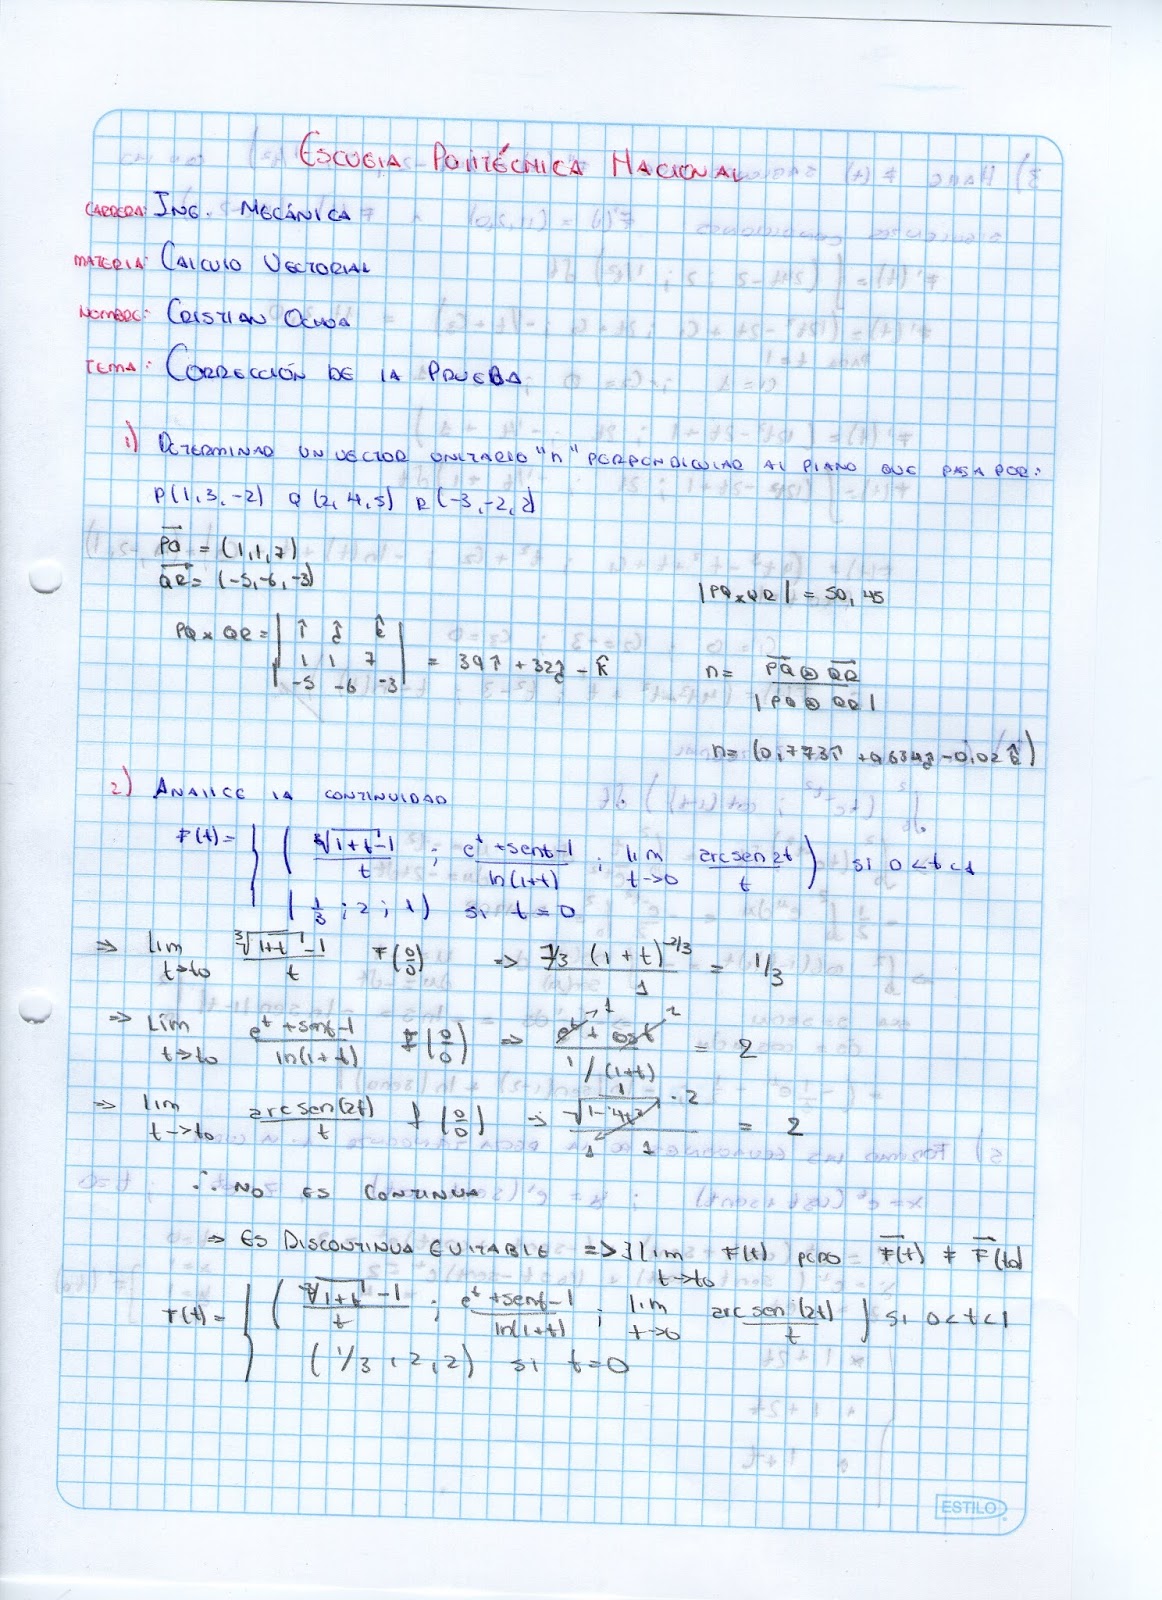 ESCUELA POLITÉCNICA NACIONAL
CARRERA: ING. MECÁNICA
MATERIA: CALCULO VECTORIAL
NOMBRE: CRISTIAN OCHOA
TEMA: CORRECCIÓN DE LA PRUEBA
1) DETERMINAD UN VECTOR UNITARIO "n" PERPENDICULAR AL PLANO QUE PASA POR:
P(1,3,-2) Q(2,4,5) R(-3,-2,2)
PQ = (1,1,7)
QR = (-5,-6,-3)
|PQ x QR| = 50,45
PQ x QR = | î ĵ k̂ |
| 1 1 7 | = 39î + 32ĵ - k̂
| -5 -6 -3 |
n = PQ ⊗ QR / |PQ ⊗ QR|
n = (0,773î + 0,634ĵ - 0,02k̂)
2) ANALICE LA CONTINUIDAD
F(t) = { ( ∛(1+t) - 1 / t ; e^t + sent - 1 / ln(1+t) ; lim t→0 arcsen 2t / t ) si 0<t<1
( 1/3 ; 2 ; 1 ) si t = 0
⇒ lim t→to ∛(1+t) - 1 / t F(0/0) ⇒ 1/3 (1+t)^-2/3 / 1 = 1/3
⇒ Lim t→to e^t + sent - 1 / ln(1+t) F(0/0) ⇒ e^t →1 + cost 2 / 1/(1+t) = 2
⇒ lim t→to arcsen(2t) / t f(0/0) ⇒ 1/√(1-4t²) · 2 / 1 1 = 2
∴ NO ES CONTINUA
⇒ ES DISCONTINUA EVITABLE => ∃ lim t→to F(t) PERO = F(t) ≠ F(to)
F(t) = { ( ∛(1+t) - 1 / t ; e^t + sent - 1 / ln(1+t) ; lim t→0 arcsen(2t) / t ) si 0<t<1
( 1/3 , 2, 2) si t=0
ESTILO